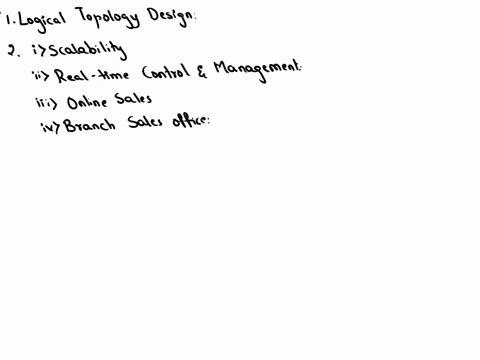 1. Logical Topology Design:
2. i> Scalability
ii> Real-time Control & Management.
iii> Online Sales
iv> Branch Sales office: